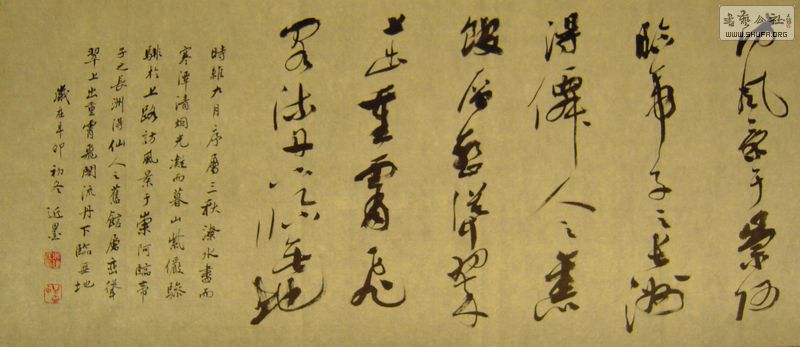 书艺公社
WWW.SHUFA.ORG
訪風景于崇阿
臨帝子之長洲
得僊人之舊
館層巒聳翠
上出重霄飛
閣流丹下臨無地
時維九月序屬三秋潦水盡而
寒潭清烟光凝而暮山紫儼驂
騑於上路訪風景于崇阿臨帝
子之長洲得仙人之舊館層巒聳
翠上出重霄飛閣流丹下臨無地
歲在辛卯初冬 近墨